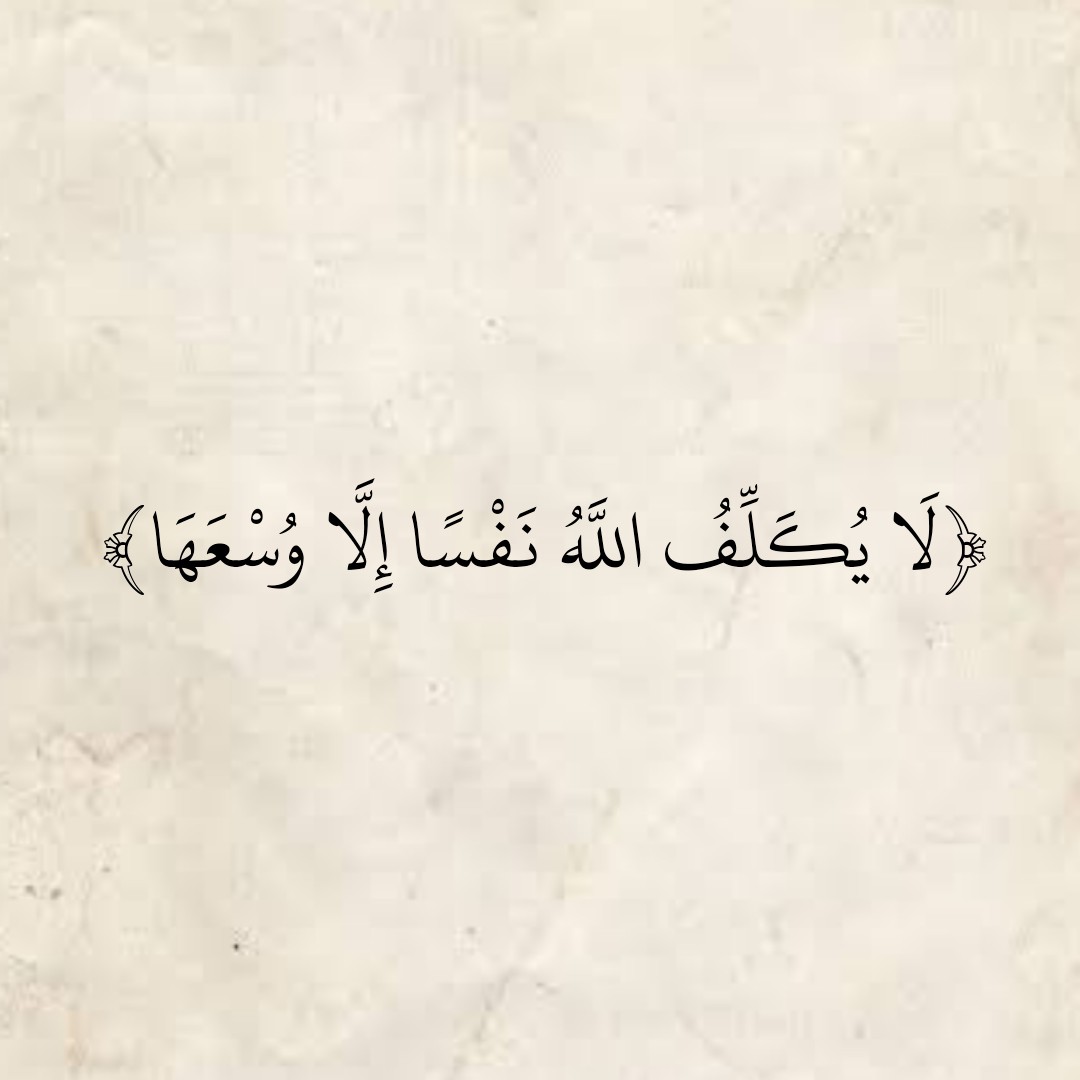 ﴿لَا يُكَلِّفُ اللَّهُ نَفْسًا إِلَّا وُسْعَهَا﴾